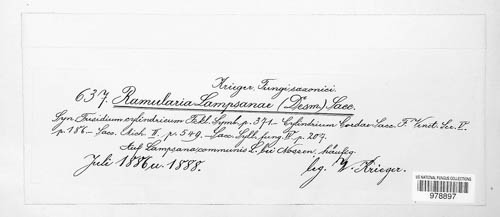 Krieger, Fungi saxonici.
637. Ramularia Lampsanae (Desm.) Sacc.
Syn. Fusidium cylindricum Fckl. Symb. p. 371 – Cylindrium Cordae Sacc. F. Venet. Ser. V.
p. 186 – Sacc. Mich. II, p. 549 – Sacc. Syll. fung. IV p. 207.
Auf Lampsana communis L. bei Nossen, häufig.
Juli 1886 u. 1888. leg. W. Krieger.
US NATIONAL FUNGUS COLLECTIONS
978897